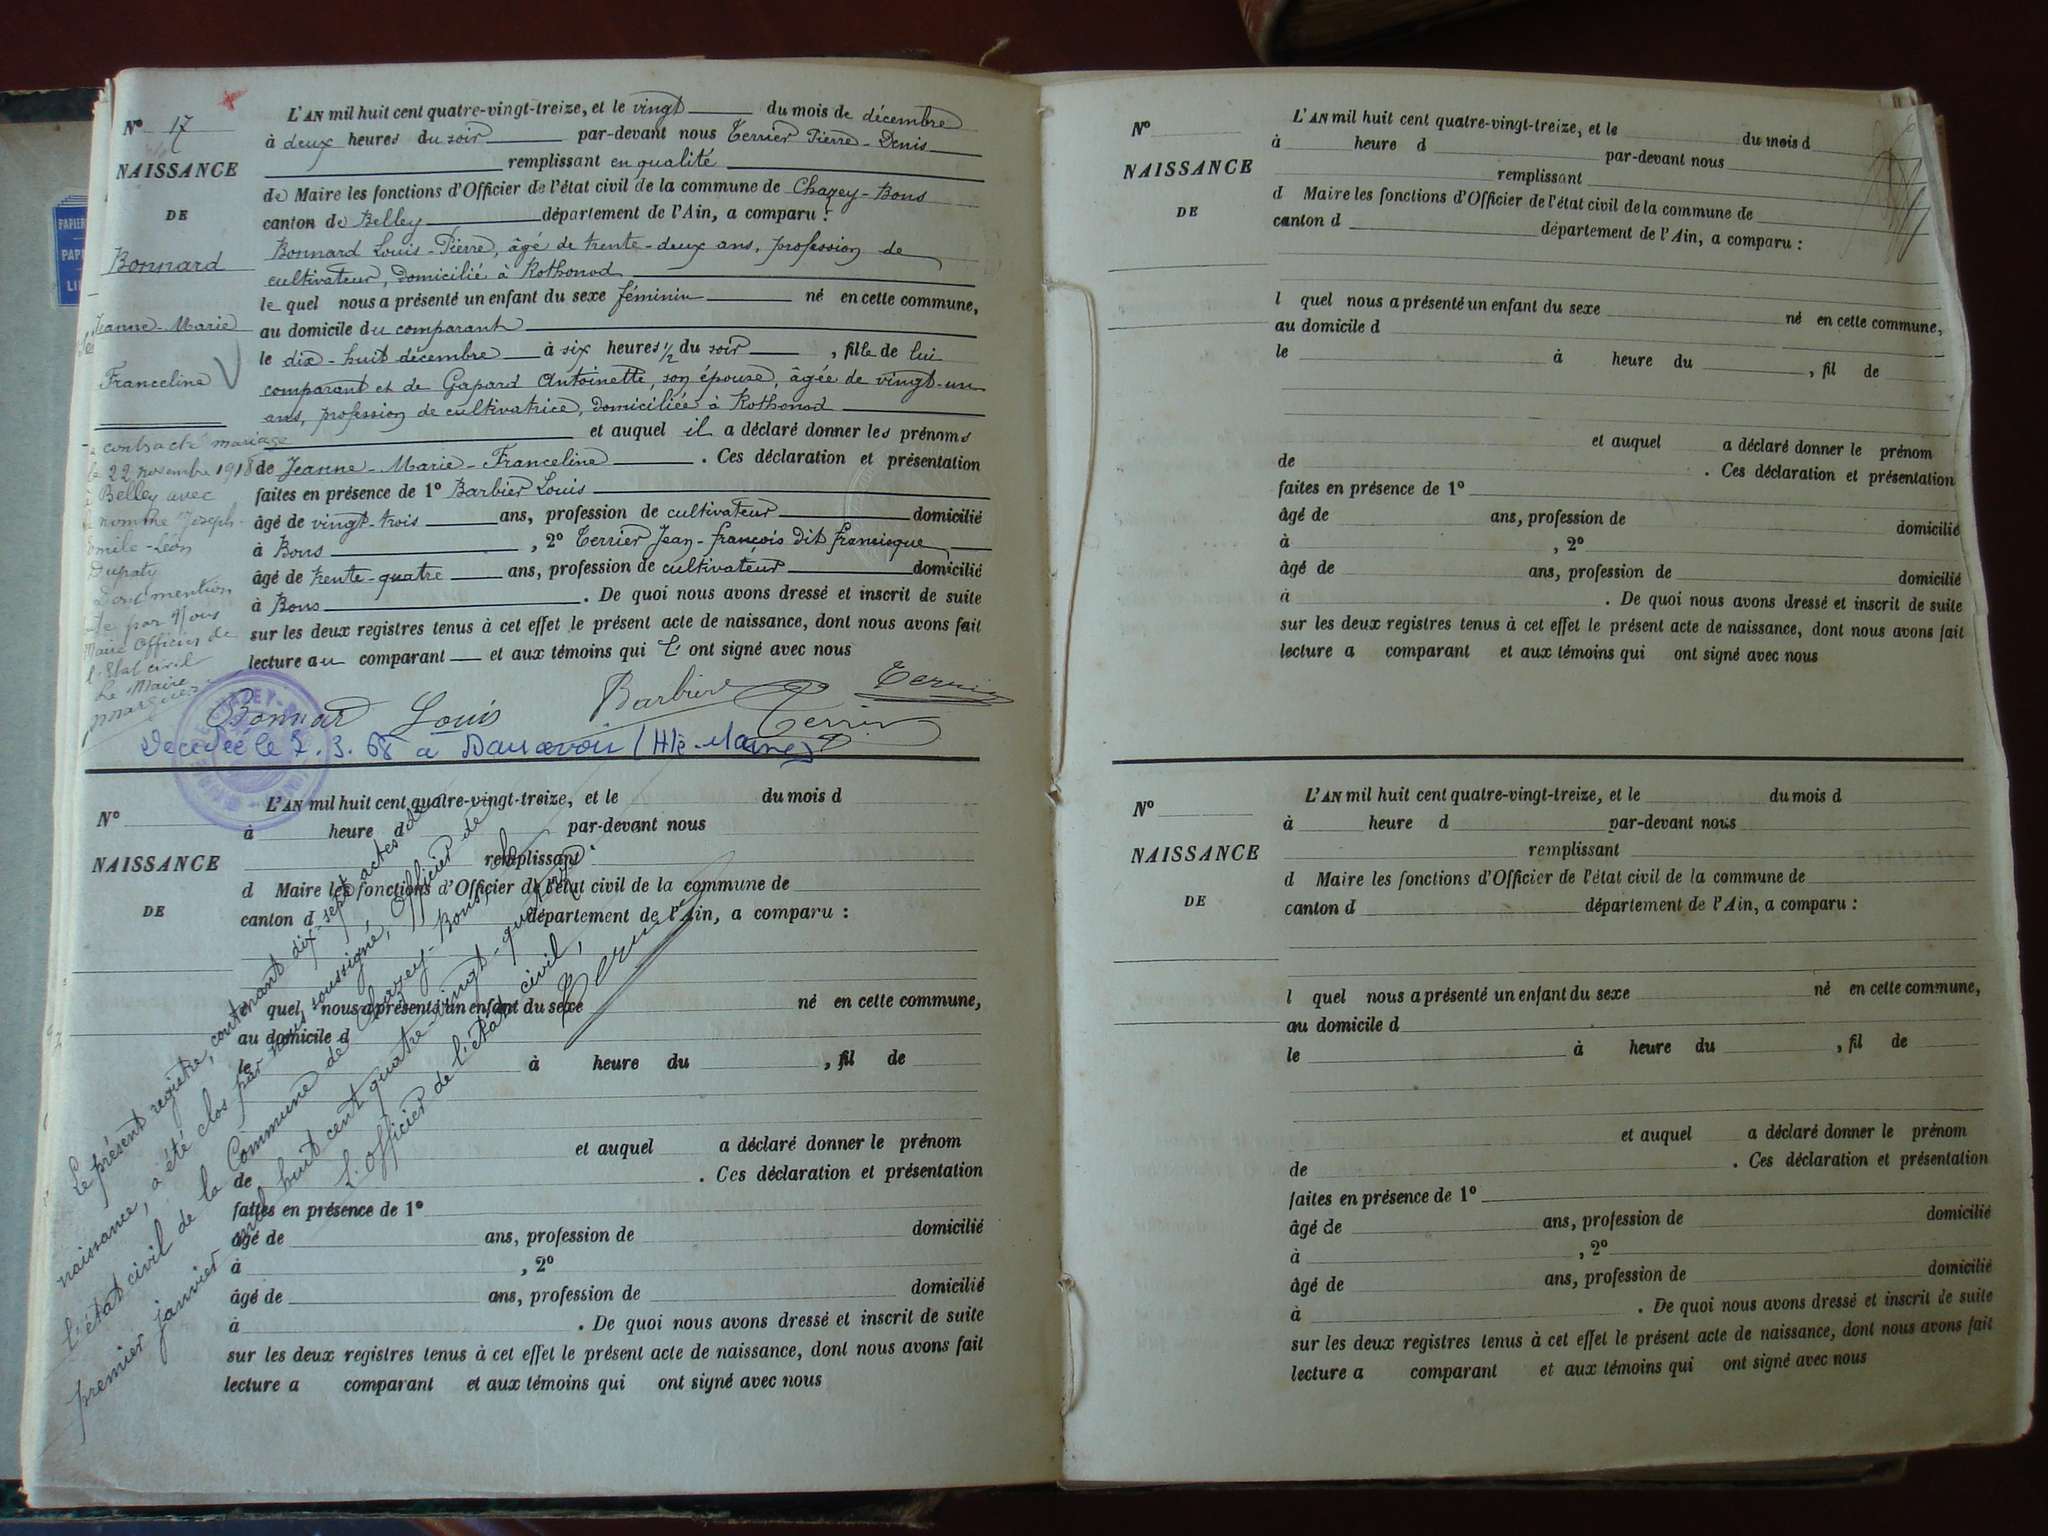 N° 17
NAISSANCE
DE
Bonnard
Jeanne-Marie
Franceline
a contracté mariage
le 22 novembre 1918
à Belley avec
Joseph-
Emile-Léon
Dupaty
Dont mention
par Nous
Maire Officier de
l'Etat civil
Le Maire
L'AN mil huit cent quatre-vingt-treize, et le vingt du mois de décembre
à deux heures du soir par-devant nous Terrier Pierre-Denis
remplissant en qualité
de Maire les fonctions d'Officier de l'état civil de la commune de Chazey-Bons
canton de Belley département de l'Ain, a comparu :
Bonnard Louis-Pierre, âgé de trente-deux ans, profession de
cultivateur, domicilié à Rothonod
le quel nous a présenté un enfant du sexe féminin né en cette commune,
au domicile du comparant
le dix-huit décembre à six heures 1/2 du soir , fille de lui
comparant et de Gapard Antoinette, son épouse, âgée de vingt-un
ans, profession de cultivatrice, domiciliée à Rothonod
et auquel il a déclaré donner les prénoms
de Jeanne-Marie-Franceline . Ces déclaration et présentation
faites en présence de 1° Barbier Louis
âgé de vingt-trois ans, profession de cultivateur domicilié
à Bons , 2° Terrier Jean-françois dit francisque
âgé de trente-quatre ans, profession de cultivateur domicilié
à Bons . De quoi nous avons dressé et inscrit de suite
sur les deux registres tenus à cet effet le présent acte de naissance, dont nous avons fait
lecture au comparant et aux témoins qui l' ont signé avec nous
Bonnard Louis Barbier Terrier
Terrier
Décédée le 7.3.68 à (Hte-Marne)
N°
NAISSANCE
DE
L'AN mil huit cent quatre-vingt-treize, et le du mois d
à heure d par-devant nous
remplissant
d Maire les fonctions d'Officier de l'état civil de la commune de
canton d département de l'Ain, a comparu :
l quel nous a présenté un enfant du sexe né en cette commune,
au domicile d
le à heure du , fil de
et auquel a déclaré donner le prénom
de . Ces déclaration et présentation
faites en présence de 1°
âgé de ans, profession de domicilié
à , 2°
âgé de ans, profession de domicilié
à . De quoi nous avons dressé et inscrit de suite
sur les deux registres tenus à cet effet le présent acte de naissance, dont nous avons fait
lecture a comparant et aux témoins qui ont signé avec nous
Le présent registre, contenant dix-sept actes de
naissance, a été clos par nous soussigné, Officier de
l'état civil de la Commune de Chazey-Bons, le
premier janvier mil huit cent quatre-vingt-quatorze.
L'Officier de l'état civil,
Terrier
N°
NAISSANCE
DE
L'AN mil huit cent quatre-vingt-treize, et le du mois d
à heure d par-devant nous
remplissant
d Maire les fonctions d'Officier de l'état civil de la commune de
canton d département de l'Ain, a comparu :
l quel nous a présenté un enfant du sexe né en cette commune,
au domicile d
le à heure du , fil de
et auquel a déclaré donner le prénom
de . Ces déclaration et présentation
faites en présence de 1°
âgé de ans, profession de domicilié
à , 2°
âgé de ans, profession de domicilié
à . De quoi nous avons dressé et inscrit de suite
sur les deux registres tenus à cet effet le présent acte de naissance, dont nous avons fait
lecture a comparant et aux témoins qui ont signé avec nous
N°
NAISSANCE
DE
L'AN mil huit cent quatre-vingt-treize, et le du mois d
à heure d par-devant nous
remplissant
d Maire les fonctions d'Officier de l'état civil de la commune de
canton d département de l'Ain, a comparu :
l quel nous a présenté un enfant du sexe né en cette commune,
au domicile d
le à heure du , fil de
et auquel a déclaré donner le prénom
de . Ces déclaration et présentation
faites en présence de 1°
âgé de ans, profession de domicilié
à , 2°
âgé de ans, profession de domicilié
à . De quoi nous avons dressé et inscrit de suite
sur les deux registres tenus à cet effet le présent acte de naissance, dont nous avons fait
lecture a comparant et aux témoins qui ont signé avec nous